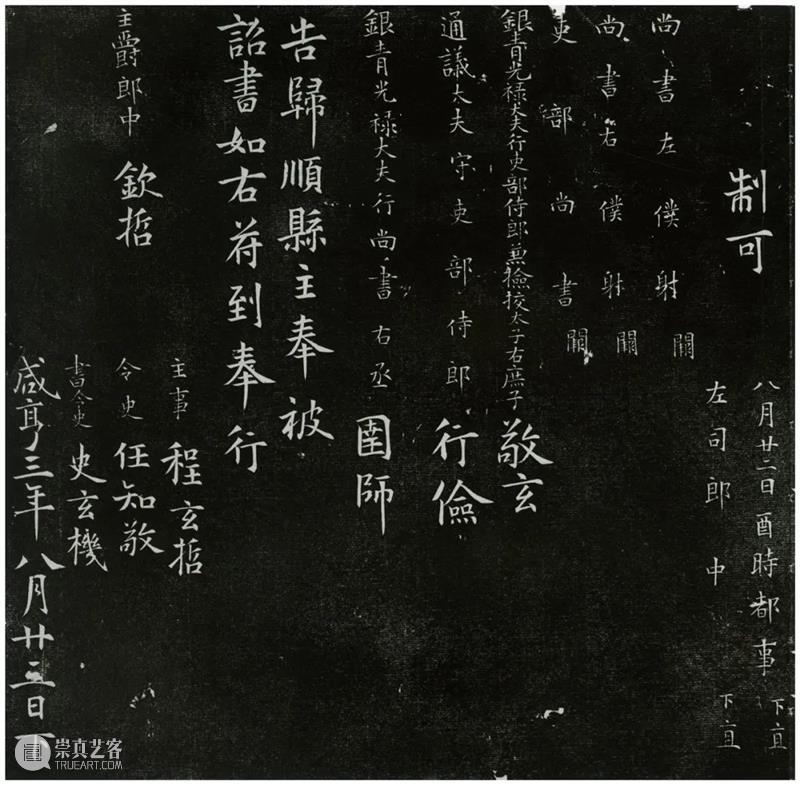 制可
八月廿二日酉時都事下直
左司郎中下直
尚書左僕射闕
尚書右僕射闕
吏部尚書闕
銀青光祿大夫行吏部侍郎兼撿挍太子右庶子敬玄
通議大夫守吏部侍郎行儉
銀青光祿大夫行尚書右丞圉師
告歸順縣主奉被
詔書如右符到奉行
主事程玄哲
主爵郎中欽哲令史任知敬
書令史史玄機
咸亨三年八月廿三日下
崇真艺客
TRUEART.COM